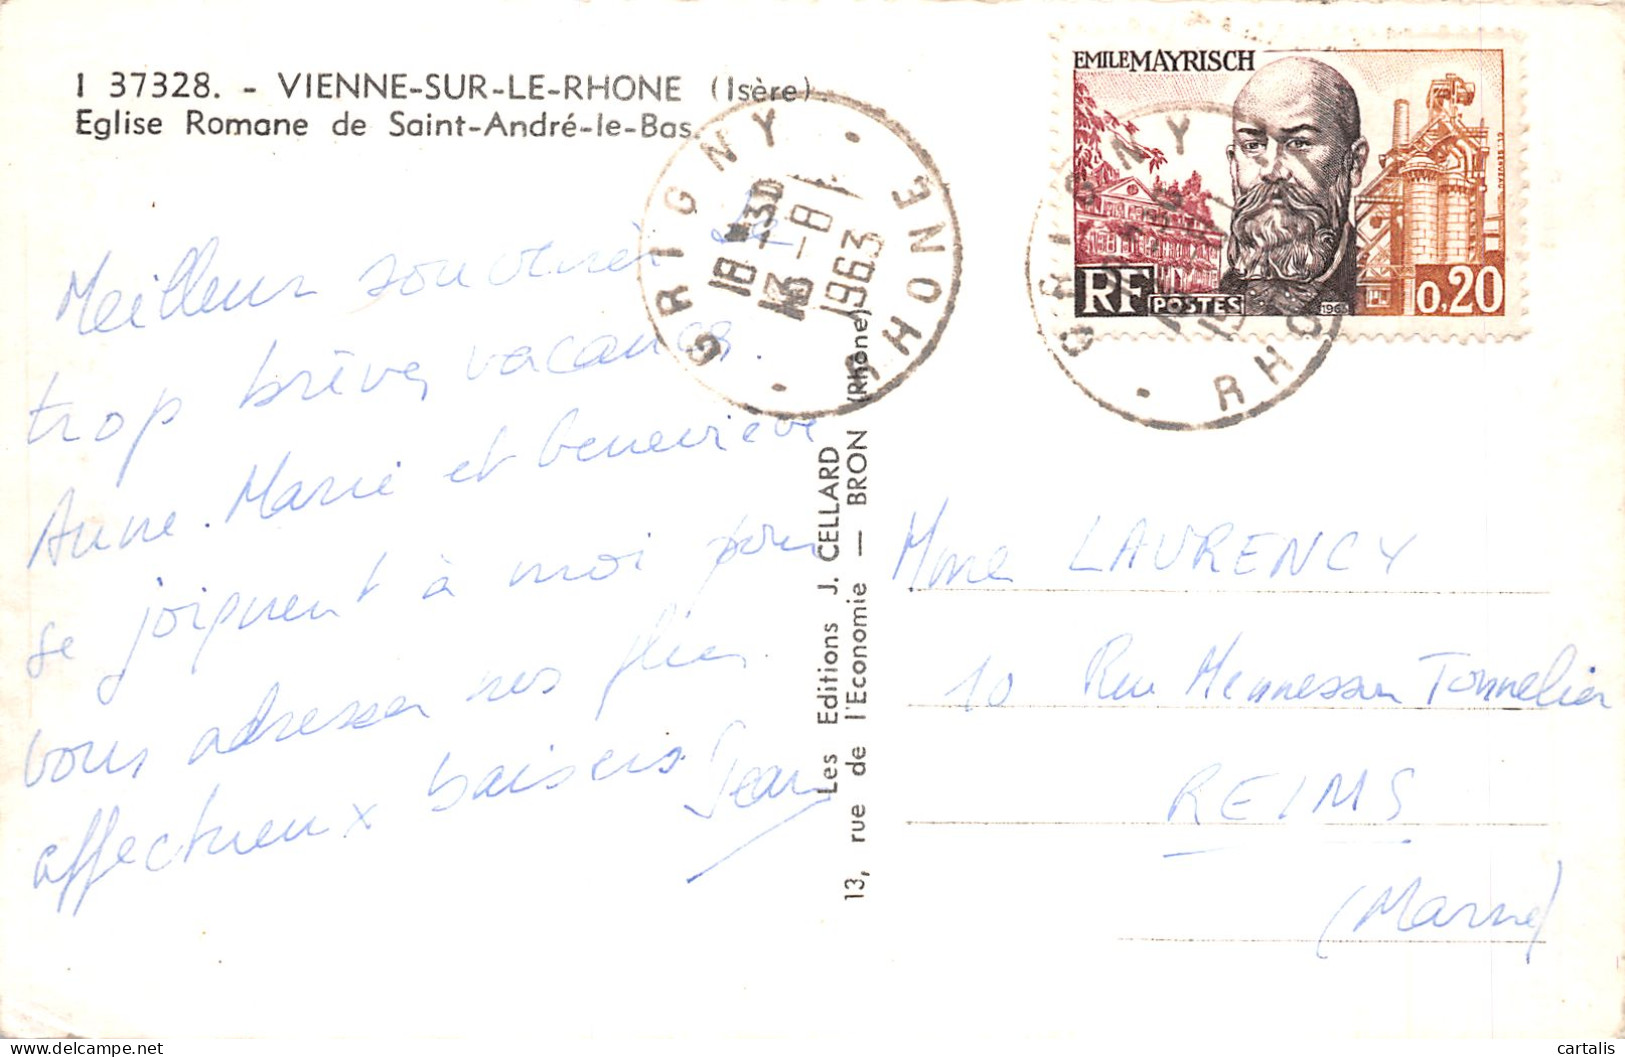 I 37328. - VIENNE-SUR-LE-RHONE (Isère)
Eglise Romane de Saint-André-le-Bas.
GRIGNY
18-30
13-8
1963
RHONE
EMILE MAYRISCH
RF POSTES
1963
0,20
GRIGNY
RHO
Meilleur souvenir de
trop brèves vacances.
Anne-Marie et Geneviève
se joignent à moi pour
vous adresser nos plus
affectueux baisers. Jean
Les Editions J. CELLARD
13, rue de l'Economie — BRON (Rhône)
Mme LAURENCY
10 Rue Mennesson Tonnelier
REIMS
(Marne)
cartalis